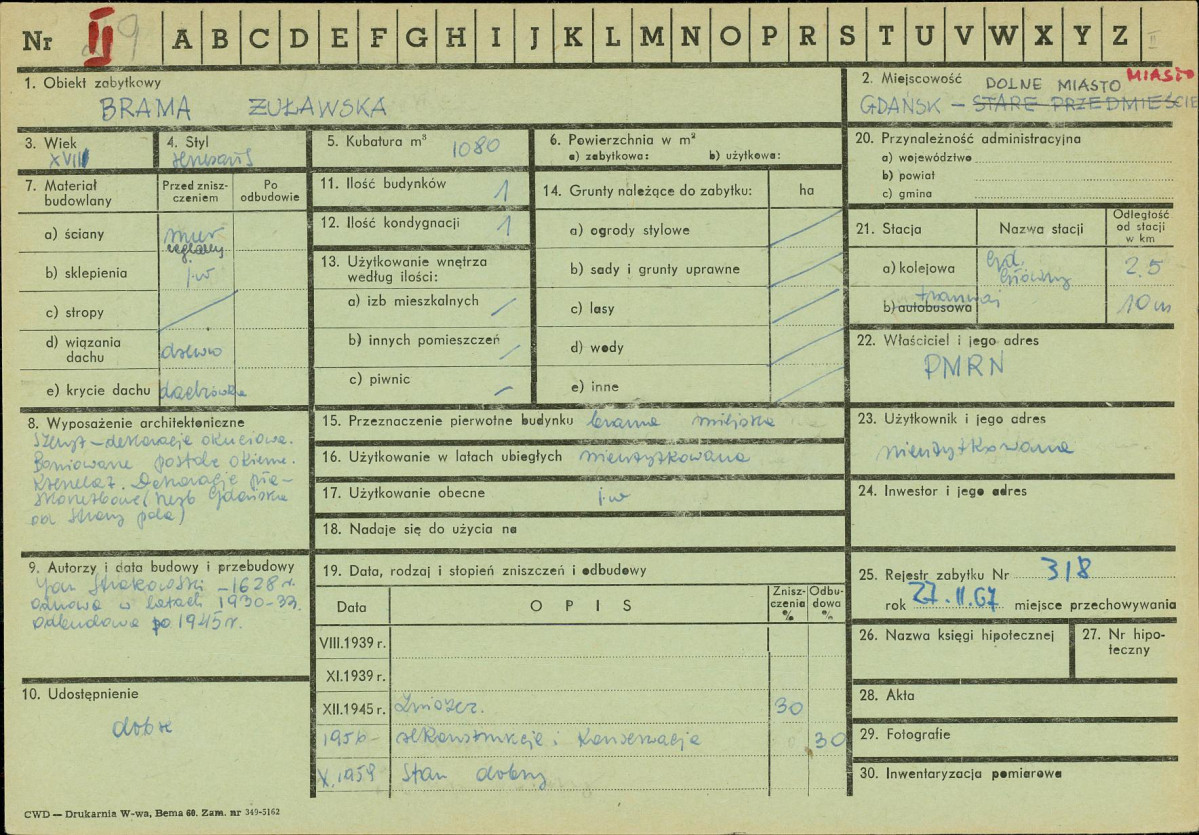 Nr II 9 A B C D E F G H I J K L M N O P R S T U V W X Y Z II
1. Obiekt zabytkowy
BRAMA ŻUŁAWSKA
2. Miejscowość DOLNE MIASTO MIASTO
GDAŃSK – STARE PRZEDMIEŚCIE
3. Wiek
XVII
4. Styl
renesans
5. Kubatura m³ 1080
6. Powierzchnia w m²
a) zabytkowa: b) użytkowa:
20. Przynależność administracyjna
a) województwo
b) powiat
c) gmina
7. Materiał budowlany
Przed zniszczeniem
Po odbudowie
a) ściany mur ceglany
b) sklepienia j.w
c) stropy
d) wiązania dachu drewno
e) krycie dachu dachówka
11. Ilość budynków 1
12. Ilość kondygnacji 1
13. Użytkowanie wnętrza
według ilości:
a) izb mieszkalnych
b) innych pomieszczeń
c) piwnic
14. Grunty należące do zabytku: ha
a) ogrody stylowe
b) sady i grunty uprawne
c) lasy
d) wody
e) inne
21. Stacja Nazwa stacji Odległość od stacji w km
a) kolejowa Gd. Główny 2.5
b) autobusowa tramwaj 10 m
22. Właściciel i jego adres
PMRN
8. Wyposażenie architektoniczne
Szczyt – dekoracje okuciowe.
Boniowane portale okienne.
Dekoracje
(herb Gdańska
od strony pola)
15. Przeznaczenie pierwotne budynku brama miejska
16. Użytkowanie w latach ubiegłych nieużytkowana
17. Użytkowanie obecne j.w
18. Nadaje się do użycia na
23. Użytkownik i jego adres
nieużytkowana
24. Inwestor i jego adres
9. Autorzy i data budowy i przebudowy
Jan Strakowski – 1628 r.
odnowa w latach 1930-33.
odbudowa po 1945 r.
10. Udostępnienie
dobre
19. Data, rodzaj i stopień zniszczeń i odbudowy
Data OPIS Zniszczenia % Odbudowa %
VIII.1939 r.
XI.1939 r.
XII.1945 r. Zniszcz. 30
1956- rekonstrukcje i konserwacja 30
X.1959 Stan dobry
25. Rejestr zabytku Nr 318
rok 27.II.67 miejsce przechowywania
26. Nazwa księgi hipotecznej
27. Nr hipoteczny
28. Akta
29. Fotografie
30. Inwentaryzacja pomiarowa
CWD — Drukarnia W-wa, Bema 60. Zam. nr 349-5162